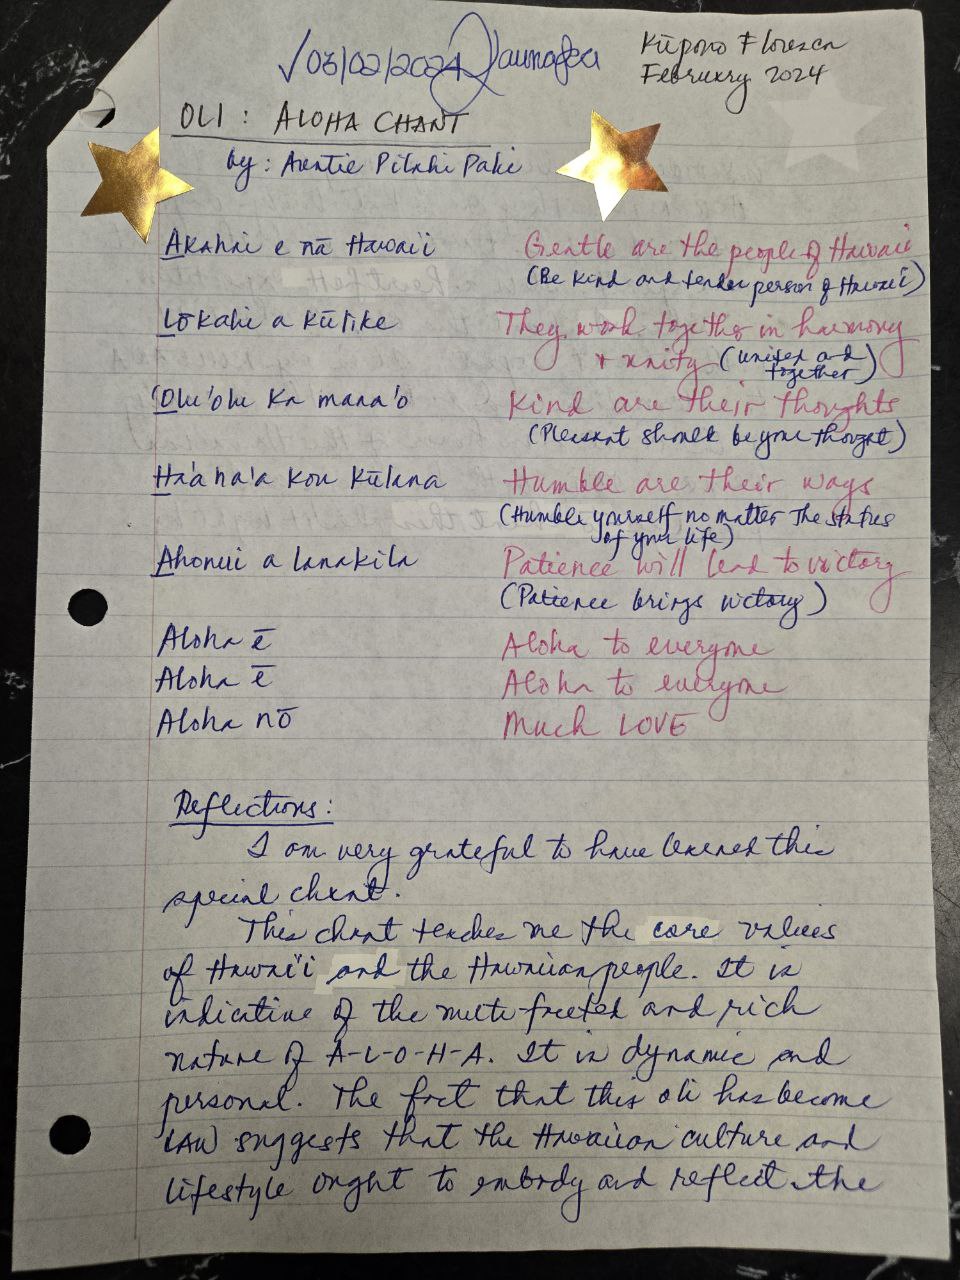 √03/02/2024
Kūpono Floresca
February 2024
OLI : ALOHA CHANT
by: Auntie Pilahi Paki
Akahai e nā Hawai'i
Gentle are the people of Hawaii
(Be kind and tender person of Hawai'i)
Lōkahi a kūlike
They work together in harmony
+ unity (united and together)
'Olu'olu ka mana'o
Kind are their thoughts
(Pleasant should be your thought)
Ha'a ha'a kou kūlana
Humble are their ways
(Humble yourself no matter the status
of your life)
Ahonui a lanakila
Patience will lead to victory
(Patience brings victory)
Aloha ē
Aloha to everyone
Aloha ē
Aloha to everyone
Aloha nō
Much LOVE
Reflections:
I am very grateful to have learned this
special chant.
This chant teaches me the core values
of Hawai'i and the Hawaiian people. It is
indicative of the multi-faceted and rich
nature of A-L-O-H-A. It is dynamic and
personal. The fact that this oli has become
LAW suggests that the Hawaiian culture and
lifestyle ought to embody and reflect the